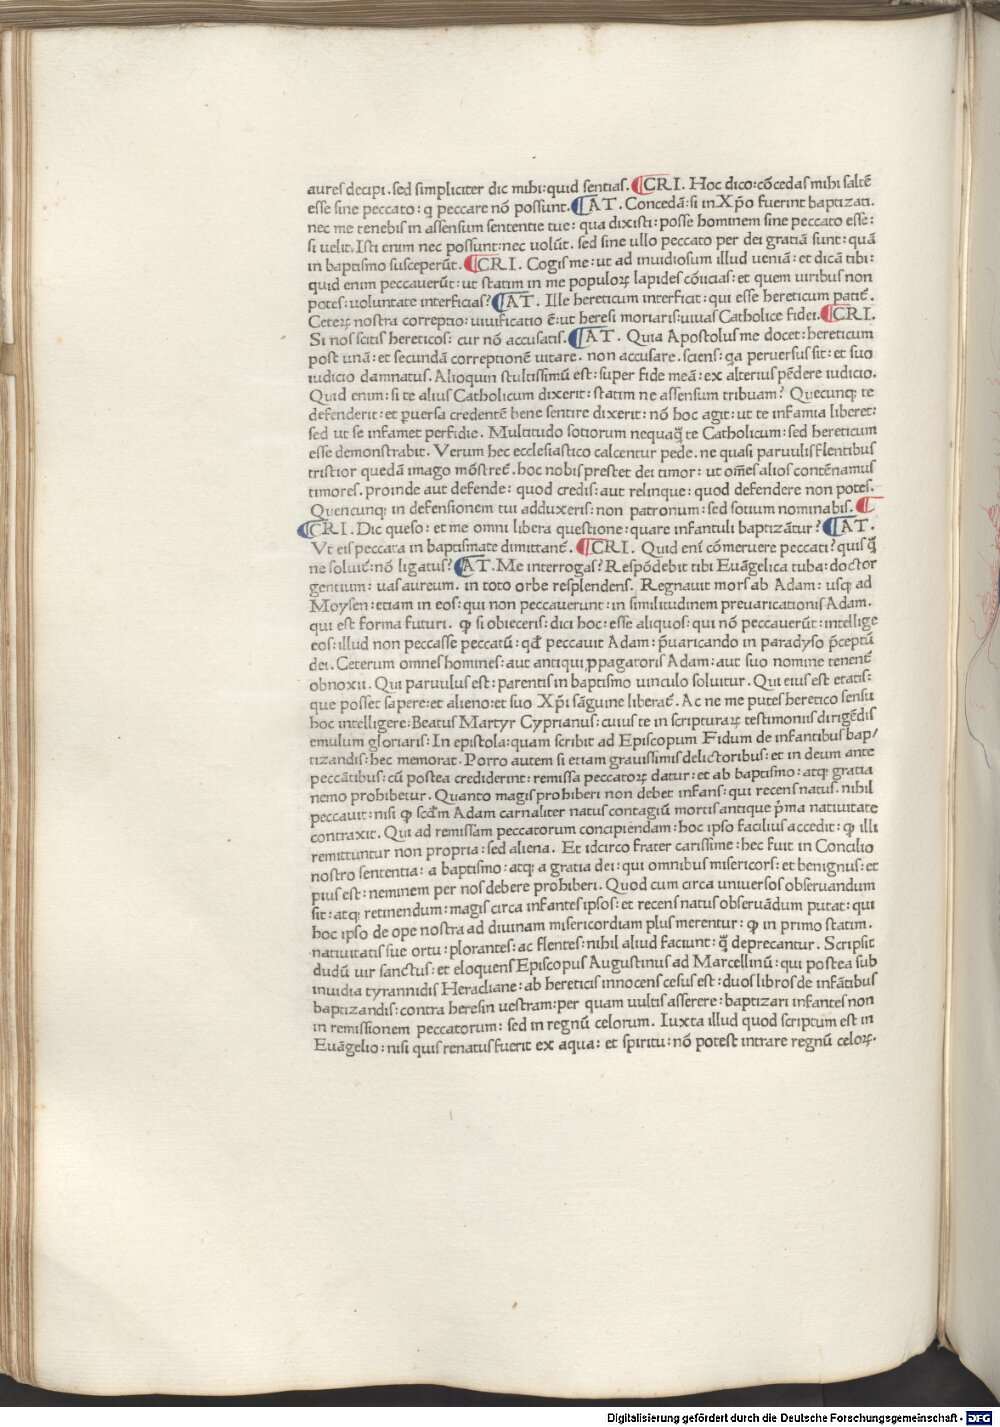 aures decipi. sed simpliciter dic mihi: quid sentias. ¶CRI. Hoc dico: cōcedas mihi saltē
esse sine peccato: q peccare nō possunt. ¶AT. Concedā: si in Xp̄o fuerint baptizati.
nec me tenebis in assensum sententie tue: qua dixisti: posse hominem sine peccato esse:
si uelit. Isti enim nec possunt: nec uolūt. sed sine ullo peccato per dei gratiā sunt: quā
in baptismo susceperūt. ¶CRI. Cogis me: ut ad inuidiosum illud ueniā: et dicā tibi:
quid enim peccauerūt: ut statim in me populoꝝ lapides cōiicias: et quem uiribus non
potes: uoluntate interficias? ¶AT. Ille hereticum interficit: qui esse hereticum patit̄.
Ceteꝝ nostra correptio: uiuificatio ē: ut heresi moriaris: uiuas Catholice fidei. ¶CRI.
Si nos scitis hereticos: cur nō accusatis. ¶AT. Quia Apostolus me docet: hereticum
post unā: et secundā correptionē uitare. non accusare. sciens: qa peruersus sit: et suo
iudicio damnatus. Alioquin stultissimū est: super fide meā: ex alterius pēdere iudicio.
Quid enim: si te alius Catholicum dixerit: statim ne assensum tribuam? Quecunqꝫ te
defenderit: et ꝑuersa credentē bene sentire dixerit: nō hoc agit: ut te infamia liberet:
sed ut se infamet perfidie. Multitudo sotiorum nequaq̄ te Catholicum: sed hereticum
esse demonstrabit. Verum hec ecclesiastico calcentur pede. ne quasi paruulis flentibus
tristior quedā imago mōstret̄. hoc nobis prestet dei timor: ut om̄es alios contēnamus
timores. proinde aut defende: quod credis: aut relinque: quod defendere non potes.
Quencunqꝫ in defensionem tui adduxeris: non patronum: sed sotium nominabis. ¶
¶CRI. Dic queso: et me omni libera questione: quare infantuli baptizātur? ¶AT.
Vt eis peccata in baptismate dimittant̄. ¶CRI. Quid eni cōmeruere peccati? quis q̄
ne soluit̄: nō ligatus? ¶AT. Me interrogas? Respōdebit tibi Euāgelica tuba: doctor
gentium: uas aureum. in toto orbe resplendens. Regnauit mors ab Adam: usqꝫ ad
Moysen: etiam in eos: qui non peccauerunt: in similitudinem preuaricationis Adam.
qui est forma futuri. ꝙ si obieceris: dici hoc: esse aliquos: qui nō peccauerūt: intellige
eos: illud non peccasse peccatū: qđ peccauit Adam: p̄uaricando in paradyso p̄ceptū
dei. Ceterum omnes homines: aut antiqui ꝓpagatoris Adam: aut suo nomine tenent̄
obnoxii. Qui paruulus est: parentis in baptismo uinculo soluitur. Qui eius est etatis:
que posset sapere: et alieno: et suo Xp̄i sāguine liberat̄. Ac ne me putes heretico sensu
hoc intelligere: Beatus Martyr Cyprianus: cuius te in scripturaꝝ testimoniis dirigēdis
emulum gloriaris: In epistola: quam scribit ad Episcopum Fidum de infantibus bap/
tizandis: hec memorat. Porro autem si etiam grauissimis delictoribus: et in deum ante
peccātibus: cū postea crediderint: remissa peccatoꝝ datur: et ab baptismo: atqꝫ gratia
nemo prohibetur. Quanto magis prohiberi non debet infans: qui recens natus. nihil
peccauit: nisi ꝙ scd̄m Adam carnaliter natus contagiū mortis antique p̄ma natiuitate
contraxit. Qui ad remissam peccatorum concipiendam: hoc ipso facilius accedit: ꝙ illi
remittuntur non propria: sed aliena. Et idcirco frater carissime: hec fuit in Concilio
nostro sententia: a baptismo: atqꝫ a gratia dei: qui omnibus misericors: et benignus: et
pius est: neminem per nos debere prohiberi. Quod cum circa uniuersos obseruandum
sit: atqꝫ retinendum: magis circa infantes ipsos: et recens natus obseruādum putat: qui
hoc ipso de ope nostra ad diuinam misericordiam plus merentur: ꝙ in primo statim.
natiuitatis sue ortu: plorantes: ac flentes: nihil aliud faciunt: q̄ deprecantur. Scripsit
dudū uir sanctus: et eloquens Episcopus Augustinus ad Marcellinū: qui postea sub
inuidia tyrannidis Heracliane: ab hereticis innocens cesus est: duos libros de infātibus
baptizandis: contra heresin uestram: per quam uultis asserere: baptizari infantes non
in remissionem peccatorum: sed in regnū celorum. Iuxta illud quod scriptum est in
Euāgelio: nisi quis renatus fuerit ex aqua: et spiritu: nō potest intrare regnū celoꝝ.
Digitalisierung gefördert durch die Deutsche Forschungsgemeinschaft - DFG